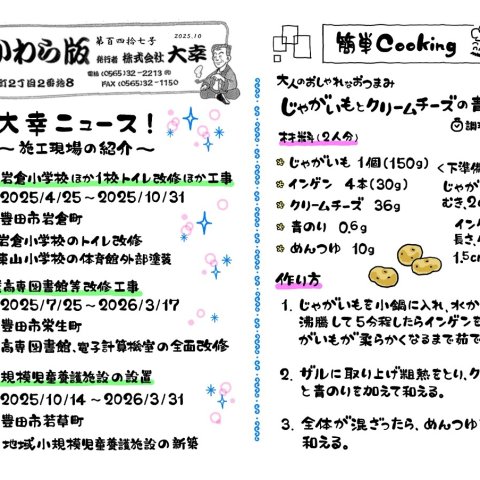 かわら版
第百四拾七号
2025.10
発行者 株式会社 大幸
町2丁目2番地8
電話 (0565)32-2213㈹
FAX (0565)32-1150
大幸ニュース!
〜施工現場の紹介〜
岩倉小学校ほか1校トイレ改修ほか工事
2025/4/25〜2025/10/31
豊田市岩倉町
岩倉小学校のトイレ改修
東山小学校の体育館外部塗装
高専図書館等改修工事
2025/7/25〜2026/3/17
豊田市栄生町
高専図書館、電子計算機室の全面改修
規模児童養護施設の設置
2025/10/14〜2026/3/31
豊田市若草町
地域小規模児童養護施設の新築
簡単Cooking
大人のおしゃれなおつまみ
じゃがいもとクリームチーズの青
調
材料(2人分)
じゃがいも 1個(150g)
インゲン 4本(30g)
クリームチーズ 36g
青のり 0.6g
めんつゆ 10g
<下準備
じゃが
むき、2c
インゲ
長さ、4
1.5cm
作り方
1. じゃがいもを小鍋に入れ、水か
沸騰して5分程したらインゲンを
がいもが柔らかくなるまで茹で
2. ザルに取り上げ粗熱をとり、ク
と青のりを加えて和える。
3. 全体が混ざったら、めんつゆ
和える。